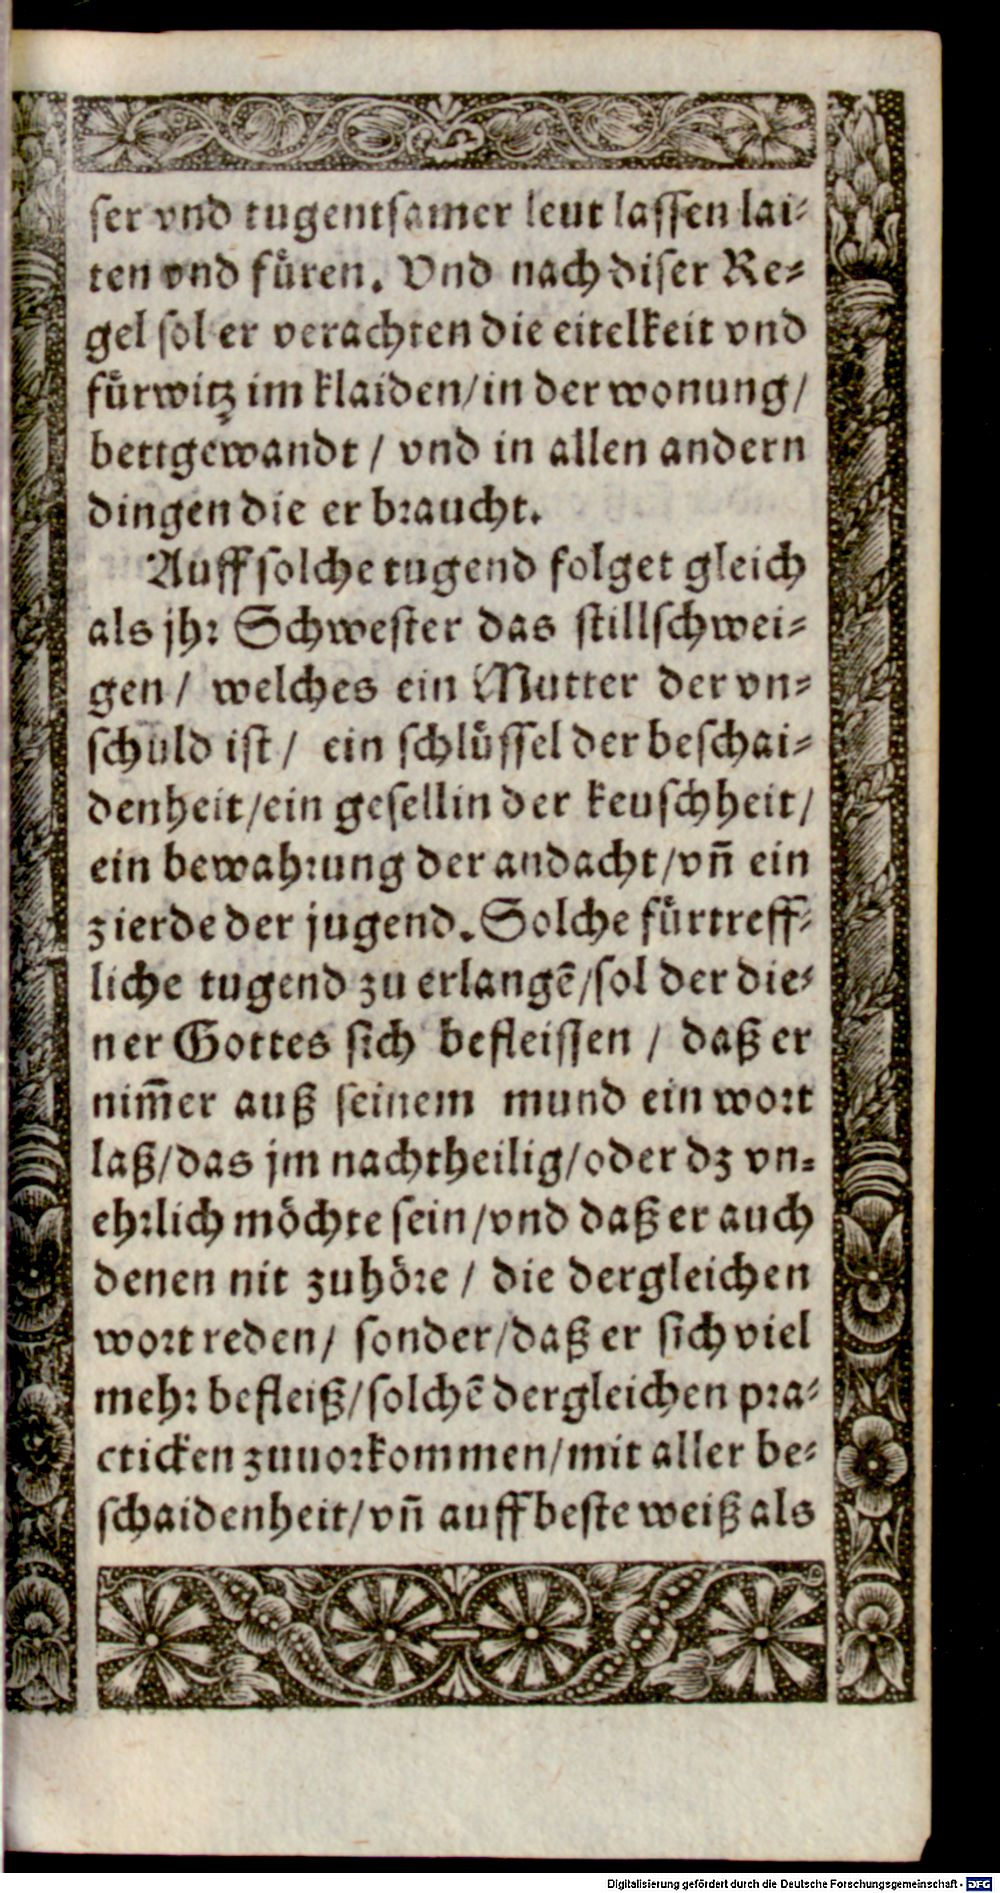 ser vnd tugentsamer leut lassen lai⸗
ten vnd fuͤren. Vnd nach diser Re⸗
gel sol er verachten die eitelkeit vnd
fuͤrwitz im klaiden/in der wonung/
bettgewandt / vnd in allen andern
dingen die er braucht.
Auff solche tugend folget gleich
als jhr Schwester das stillschwei⸗
gen / welches ein Mutter der vn⸗
schuld ist / ein schluͤssel der beschai⸗
denheit/ein gesellin der keuschheit/
ein bewahrung der andacht/vñ ein
zierde der jugend. Solche fuͤrtreff⸗
liche tugend zu erlangẽ/sol der die⸗
ner Gottes sich befleissen / daß er
nim̃er auß seinem mund ein wort
laß/das jm nachtheilig/oder dz vn⸗
ehrlich moͤchte sein/vnd daß er auch
denen nit zuhoͤre / die dergleichen
wort reden/ sonder/daß er sich viel
mehr befleiß/solchẽ dergleichen pra⸗
cticken zuuorkommen/mit aller be⸗
schaidenheit/vñ auff beste weiß als
Digitalisierung gefördert durch die Deutsche Forschungsgemeinschaft - DFG